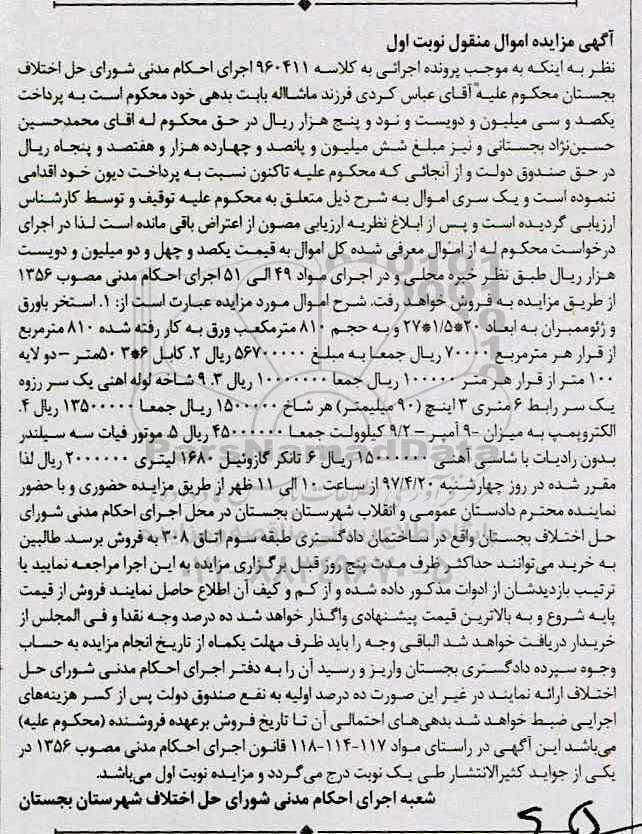 آگهی مزایده اموال منقول نوبت اول
نظر به اینکه به موجب پرونده اجرائی به کلاسه ۹۶۰۴۱۱ اجرای احکام مدنی شورای حل اختلاف
بجستان محکوم علیه آقای عباس کردی فرزند ماشااله بابت بدهی خود محکوم است به پرداخت
یکصد و سی میلیون و دویست و نود و پنج هزار ریال در حق محکوم له اقای محمدحسین
حسین‌نژاد بجستانی و نیز مبلغ شش میلیون و پانصد و چهارده هزار و هفتصد و پنجاه ریال
در حق صندوق دولت و از آنجائی که محکوم علیه تاکنون نسبت به پرداخت دیون خود اقدامی
ننموده است و یک سری اموال به شرح ذیل متعلق به محکوم علیه توقیف و توسط کارشناس
ارزیابی گردیده است و پس از ابلاغ نظریه ارزیابی مصون از اعتراض باقی مانده است لذا در اجرای
درخواست محکوم له از اموال معرفی شده کل اموال به قیمت یکصد و چهل و دو میلیون و دویست
هزار ریال طبق نظر خبره محلی و در اجرای مواد ۴۹ الی ۵۱ اجرای احکام مدنی مصوب ۱۳۵۶
از طریق مزایده به فروش خواهد رفت. شرح اموال مورد مزایده عبارت است از: ۱. استخر باورق
و ژئوممبران به ابعاد ۲۰*۱/۵*۲۷ و به حجم ۸۱۰ مترمکعب ورق به کار رفته شده ۸۱۰ مترمربع
از قرار هر مترمربع ۷۰۰۰۰ ریال جمعا به مبلغ ۵۶۷۰۰۰۰۰ ریال ۲. کابل ۶*۳ ۵۰متر – دو لایه
۱۰۰ متر از قرار هر متر ۱۰۰۰۰۰ ریال جمعا ۱۰۰۰۰۰۰۰ ریال ۳. ۹ شاخه لوله اهنی یک سر رزوه
یک سر رابط ۶ متری ۳ اینچ (۹۰ میلیمتر) هر شاخ ۱۵۰۰۰۰۰ ریال جمعا ۱۳۵۰۰۰۰۰ ریال ۴.
الکتروپمپ به میزان ۹۰ آمپر – ۹/۲ کیلوولت جمعا ۴۵۰۰۰۰۰۰ ریال ۵. موتور فیات سه سیلندر
بدون رادیات با شاسی آهنی ۱۵۰۰۰۰۰۰ ریال ۶. تانکر گازوئیل ۱۶۸۰ لیتری ۲۰۰۰۰۰۰ ریال لذا
مقرر شده در روز چهارشنبه ۹۷/۴/۲۰ از ساعت ۱۰ الی ۱۱ ظهر از طریق مزایده حضوری و با حضور
نماینده محترم دادستان عمومی و انقلاب شهرستان بجستان در محل اجرای احکام مدنی شورای
حل اختلاف بجستان واقع در ساختمان دادگستری طبقه سوم اتاق ۳۰۸ به فروش برسد. طالبین
به خرید می‌توانند حداکثر ظرف مدت پنج روز قبل برگزاری مزایده به این اجرا مراجعه نمایید یا
ترتیب بازدیدشان از ادوات مذکور داده شده و از کم و کیف آن اطلاع حاصل نمایند فروش از قیمت
پایه شروع و به بالاترین قیمت پیشنهادی واگذار خواهد شد ده درصد وجه نقدا و فی المجلس از
خریدار دریافت خواهد شد الباقی وجه را باید ظرف مهلت یکماه از تاریخ انجام مزایده به حساب
وجوه سپرده دادگستری بجستان واریز و رسید آن را به دفتر اجرای احکام مدنی شورای حل
اختلاف ارائه نمایند در غیر این صورت ده درصد اولیه به نفع صندوق دولت پس از کسر هزینه‌های
اجرایی ضبط خواهد شد بدهی‌های احتمالی آن تا تاریخ فروش برعهده فروشنده (محکوم علیه)
می‌باشد این آگهی در راستای مواد ۱۱۷-۱۱۴-۱۱۸ قانون اجرای احکام مدنی مصوب ۱۳۵۶ در
یکی از جواید کثیرالانتشار طی یک نوبت درج می‌گردد و مزایده نوبت اول می‌باشد.
شعبه اجرای احکام مدنی شورای حل اختلاف شهرستان بجستان